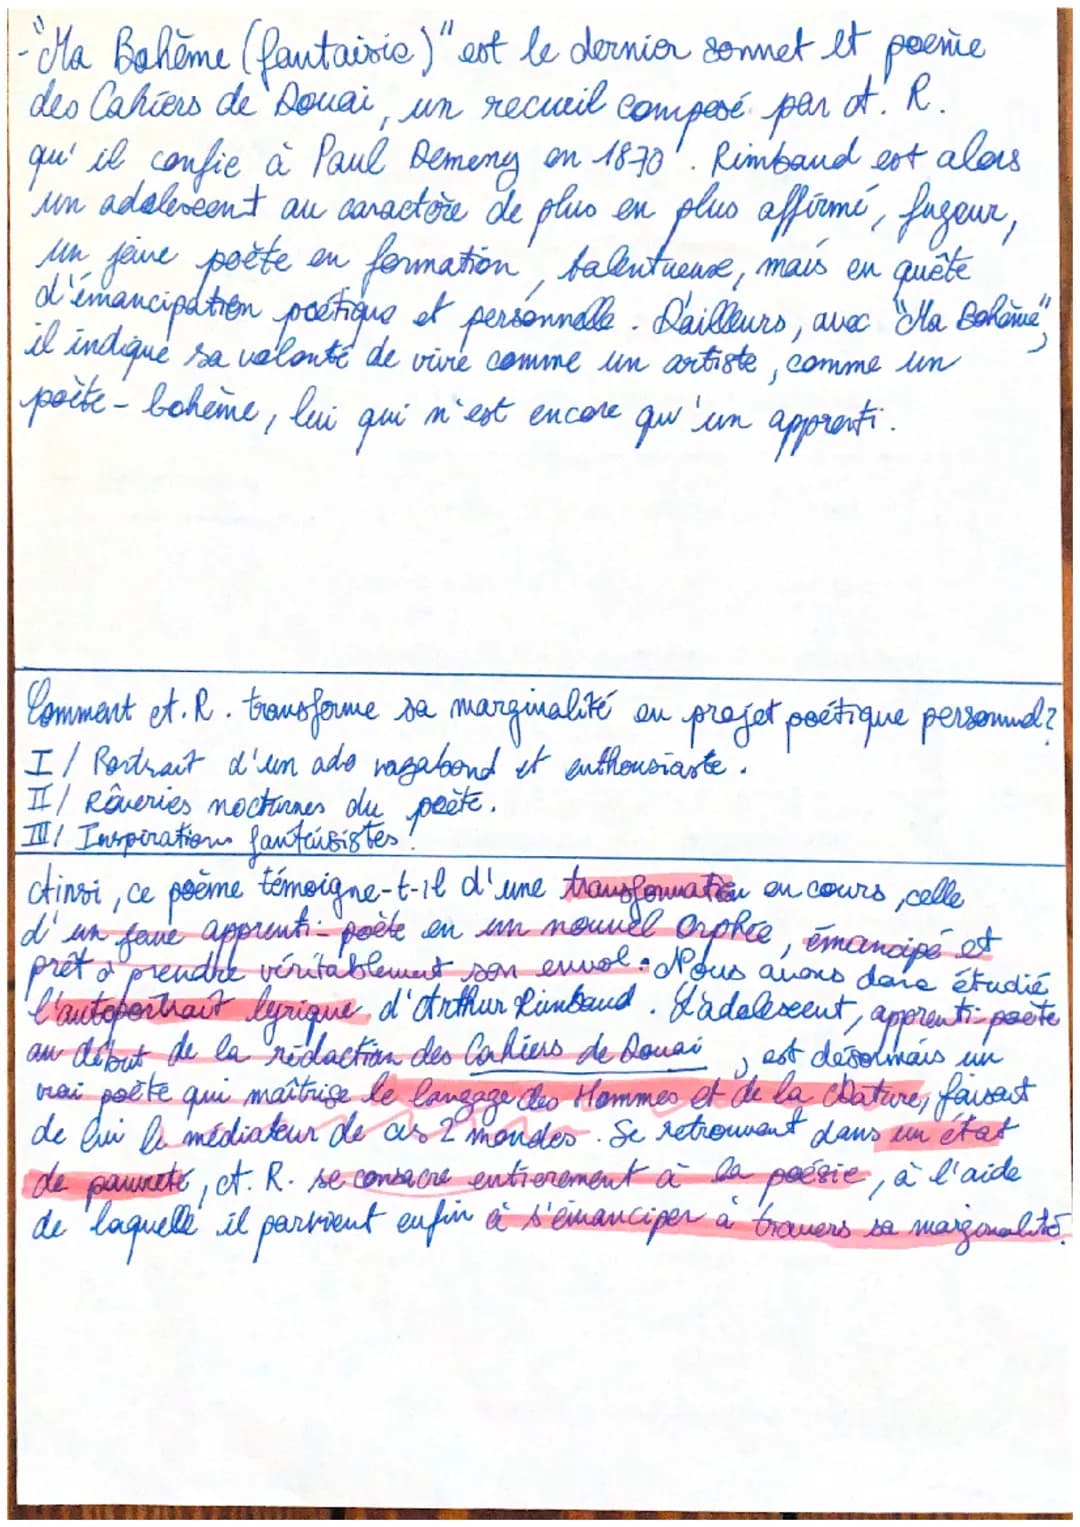 -"Ma Bohême (fantaisie)" est le dernier sonnet et poème
des Cahiers de Douai, un recueil composé par A. R.
qu'il confie à Paul Demeny en 1870. Rimbaud est alors
un adolescent au caractère de plus en plus affirmé, fugeur,
un jeune poète en formation, talentueux, mais en quête
d'émancipation poétique et personnelle. D'ailleurs, avec "Ma Bohème",
il indique sa volonté de vivre comme un artiste, comme un
poète-bohème, lui qui n'est encore qu'un apprenti.
Comment A.R. transforme sa marginalité en projet poétique personnel?
I/ Portrait d'un ado vagabond et enthousiaste.
II/ Rêveries nocturnes du poète.
III/ Inspirations fantaisistes!
Ainsi, ce poème témoigne-t-il d'une transformation en cours, celle
d'un jeune apprenti-poète en un nouvel Orphée, émancipé et
prêt à prendre véritablement son envol. Nous avons donc étudié
l'autoportrait lyrique d'Arthur Rimbaud. L'adolescent, apprenti-poète
au début de la rédaction des Cahiers de Douai, est désormais un
vrai poète qui maîtrise le langage des Hommes et de la Nature, faisant
de lui le médiateur de ces 2 mondes. Se retrouvant dans un état
de pauvreté, A. R. se consacre entièrement à la poésie, à l'aide
de laquelle il parvient enfin à s'émanciper à travers sa marginalité.